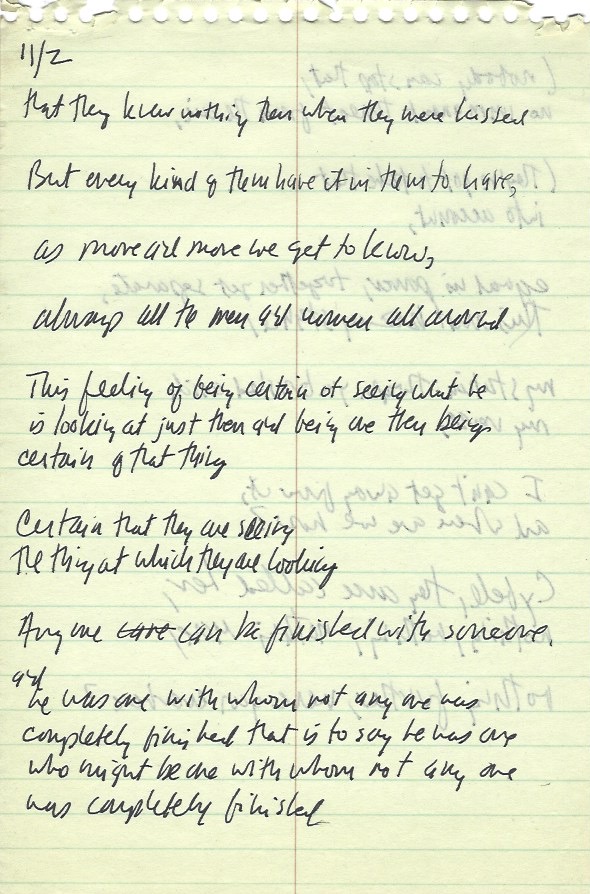 11/2
that they knew nothing then when they were kissed
But every kind of them have it in them to have,
as more and more we get to know,
always all the men and women all around
This feeling of being certain of seeing what he
is looking at just then and being one then being
certain of that thing
Certain that they are seeing
the thing at which they are looking
Any one care can be finished with someone.
and
he was one with whom not any one was
completely finished that is to say he was one
who might be one with whom not any one
was completely finished